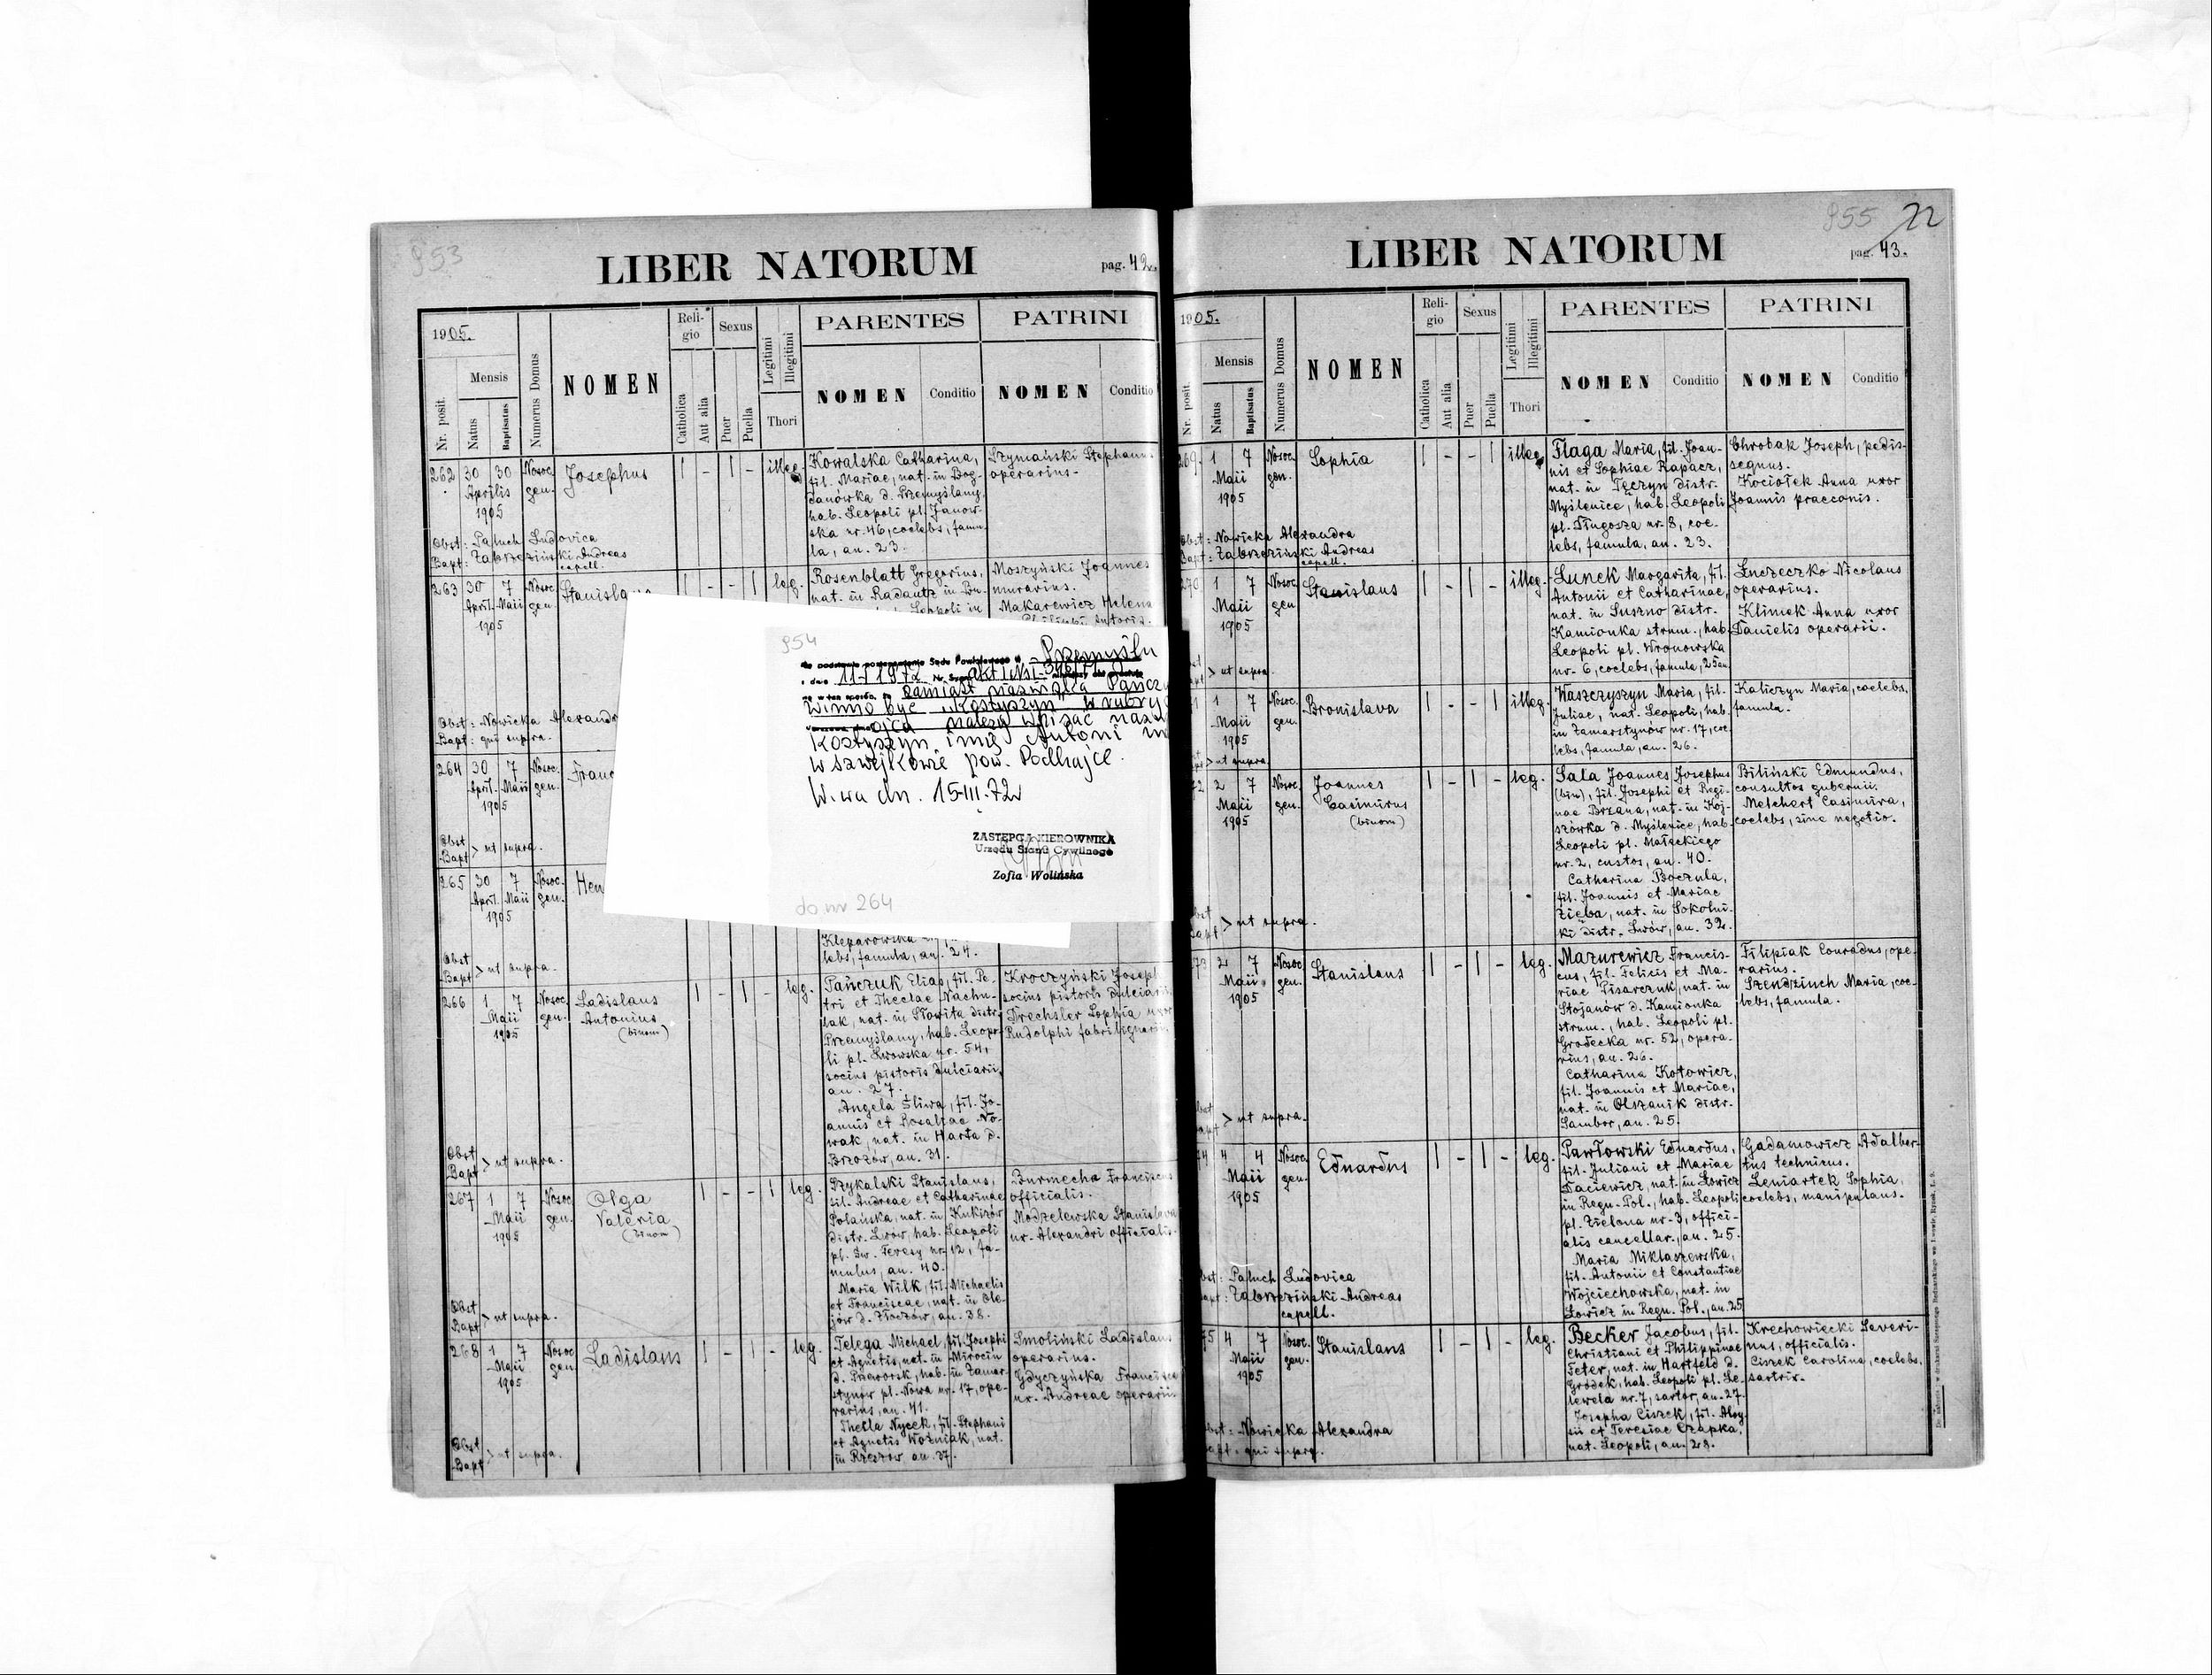 953
LIBER NATORUM
pag. 42.
1905.
Nr. posit.
Mensis
Natus
Baptisatus
Numerus Domus
NOMEN
Religio
Catholica
Aut alia
Sexus
Puer
Puella
Legitimi
Illegitimi
Thori
PARENTES
NOMEN
Conditio
PATRINI
NOMEN
Conditio
262 30 30 Nosoc. Josephus 1 - 1 - illeg.
Aprilis gen.
1905
Kowalska Catharina,
fil. Mariae, nat. in Bog-
danówka d. Przemyślany,
hab. Leopoli pl. Janow-
ska nr. 46, coelebs, famu-
la, an. 23.
Szymański Stephanus
operarius.
Obst: Paluch Ludovica
Bapt: Zabrzeziński Andreas
capell.
263 30 7 Nosoc. Stanisla
April. Maii gen.
1905
leg.
Rosenblatt Gregorius,
nat. in Radautz in Bu-
Leopoli in
Moszyński Joannes
murarius.
Makarewicz Helena
Obst: Nowicka Alexandr
Bapt: qui supra.
264 30 7 Nosoc. Franc
April. Maii gen.
1905
Obst
Bapt > ut supra.
265 30 7 Nosoc. Hen
April. Maii gen.
1905
Kleparowska
lebs, famula, an. 24.
Obst
Bapt > ut supra.
266 1 7 Nosoc. Ladislaus 1 - 1 - leg.
Maii gen. Antonius
1905 (binom)
Pańczuk Elias, fil. Pe-
tri et Theclae Nachu-
lak, nat. in Słowita distr.
Przemyślany, hab. Leopo-
li pl. Lwowska nr. 54,
socius pistoris dulciarii,
an. 27.
Angela Śliwa, fil. Jo-
annis et Rosaliae No-
wak, nat. in Harta d.
Brzozów, an. 31.
Kroczyński Joseph
socius pistoris dulciarii.
Drechsler Sophia uxor
Rudolphi fabri lignarii.
Obst
Bapt > ut supra.
267 1 7 Nosoc. Olga 1 - - 1 leg.
Maii gen. Valeria
1905 (binom)
Szykalski Stanislaus,
fil. Andreae et Catharinae
Polańska, nat. in Kukizów
distr. Lwów, hab. Leopoli
pl. Św. Teresy nr. 12, fa-
mulus, an. 40.
Maria Wilk, fil. Michaelis
et Franciscae, nat. in Ole-
jów d. Złoczów, an. 38.
Burmecha Franciscus
officialis.
Modzelewska Stanislava
ur. Alexandri officialis.
Obst
Bapt > ut supra.
268 1 7 Nosoc. Ladislaus 1 - 1 - leg.
Maii gen.
1905
Telega Michael, fil. Josephi
et Agnetis, nat. in Mirocin
d. Przeworsk, hab. in Zamar-
stynów pl. Nowa nr. 17, ope-
rarius, an. 41.
Thecla Nycek, fil. Stephani
et Agnetis Woźniak, nat.
in Rzeszów an. 37.
Smoliński Ladislaus
operarius.
Gdyczyńska Francisca
ur. Andreae operarii
Obst
Bapt > ut supra.
954
Na podstawie postanowienia Sądu Powiatowego w Przemyślu
z dnia 11-I 1972
zamiast nazwiska Pańczy
winno być "Kostyszyn" w rubryc
ojca należy wpisać nazw
Kostyszyn imię Antoni
w Szwejkowie pow. Podhajce.
W-wa dn. 15-III-72
ZASTĘPCA KIEROWNIKA
Urzędu Stanu Cywilnego
Zofia Wolińska
do nr 264
955 22
LIBER NATORUM
pag. 43.
1905.
Nr. posit.
Mensis
Natus
Baptisatus
Numerus Domus
NOMEN
Religio
Catholica
Aut alia
Sexus
Puer
Puella
Legitimi
Illegitimi
Thori
PARENTES
NOMEN
Conditio
PATRINI
NOMEN
Conditio
269 1 7 Nosoc. Sophia 1 - - 1 illeg.
Maii gen.
1905
Flaga Maria, fil. Joan-
nis et Sophiae Rapacz,
nat. in Tęczyn distr.
Myślenice, hab. Leopoli
pl. Długosza nr. 8, coe-
lebs, famula, an. 23.
Chrobak Joseph, pedis-
sequus.
Kociołek Anna uxor
Joannis praeconis.
Obst: Nowicka Alexandra
Bapt: Zabrzeziński Andreas
capell.
270 1 7 Nosoc. Stanislaus 1 - 1 - illeg.
Maii gen.
1905
Lunek Margarita, fil.
Antonii et Catharinae,
nat. in Suszno distr.
Kamionka strum., hab.
Leopoli pl. Wronowska
nr. 6, coelebs, famula, 25 an.
Luczeczko Nicolaus
operarius.
Klimek Anna uxor
Danielis operarii.
> ut supra.
1 7 Nosoc. Bronislava 1 - - 1 illeg.
Maii gen.
1905
Waszczyszyn Maria, fil.
Juliae, nat. Leopoli, hab.
in Zamarstynów nr. 17, coe-
lebs, famula, an. 26.
Kaliczyn Maria, coelebs,
famula.
> ut supra
72 2 7 Nosoc. Joannes 1 - 1 - leg.
Maii gen. Casimirus
1905 (binom)
Sala Joannes Josephus
(bin), fil. Josephi et Regi-
nae Brzana, nat. in Koj-
szówka d. Myślenice, hab.
Leopoli pl. Małeckiego
nr. 2, custos, an. 40.
Catharina Boczula,
fil. Joannis et Mariae
Zięba, nat. in Sokolni-
ki distr. Lwów, an. 32.
Biliński Edmundus,
consultos gubernii.
Melchert Casimira,
coelebs, sine negotio.
> ut supra.
73 2 7 Nosoc. Stanislaus 1 - 1 - leg.
Maii gen.
1905
Mazurewicz Francis-
cus, fil. Felicis et Ma-
riae Pisarczuk, nat. in
Stojanów d. Kamionka
strum., hab. Leopoli pl.
Grodecka nr. 52, opera-
rius, an. 26.
Catharina Kotowicz,
fil. Joannis et Mariae,
nat. in Olszanik distr.
Sambor, an. 25.
Filipiak Conradus, ope-
rarius.
Szendziuch Maria, coe-
lebs, famula.
> ut supra.
74 4 4 Nosoc. Eduardus 1 - 1 - leg.
Maii gen.
1905
Pawłowski Eduardus,
fil. Juliani et Mariae
Daciewicz, nat. in Łowicz
in Regn. Pol., hab. Leopoli
pl. Zielona nr. 3, offici-
alis cancellar., an. 25.
Maria Miklaszewska,
fil. Antonii et Constantiae
Wojciechowska, nat. in
Łowicz in Regn. Pol., an. 25
Gadamowicz Adalber-
tus technicus.
Leniartek Sophia,
coelebs, manipulans.
Obst: Paluch Ludovica
Bapt: Zabrzeziński Andreas
capell.
75 4 7 Nosoc. Stanislaus 1 - 1 - leg.
Maii gen.
1905
Becker Jacobus, fil.
Christiani et Philippinae
Feter, nat. in Hartfeld d.
Gródek, hab. Leopoli pl. Le-
lewela nr. 7, sartor, an. 27.
Josepha Ciszek, fil. Aloy-
sii et Teresiae Czapka,
nat. Leopoli, an. 28.
Krechowiecki Severi-
nus, officialis.
Ciszek Carolina, coelebs,
sartrix.
Obst: Nowicka Alexandra
Bapt: qui supra.